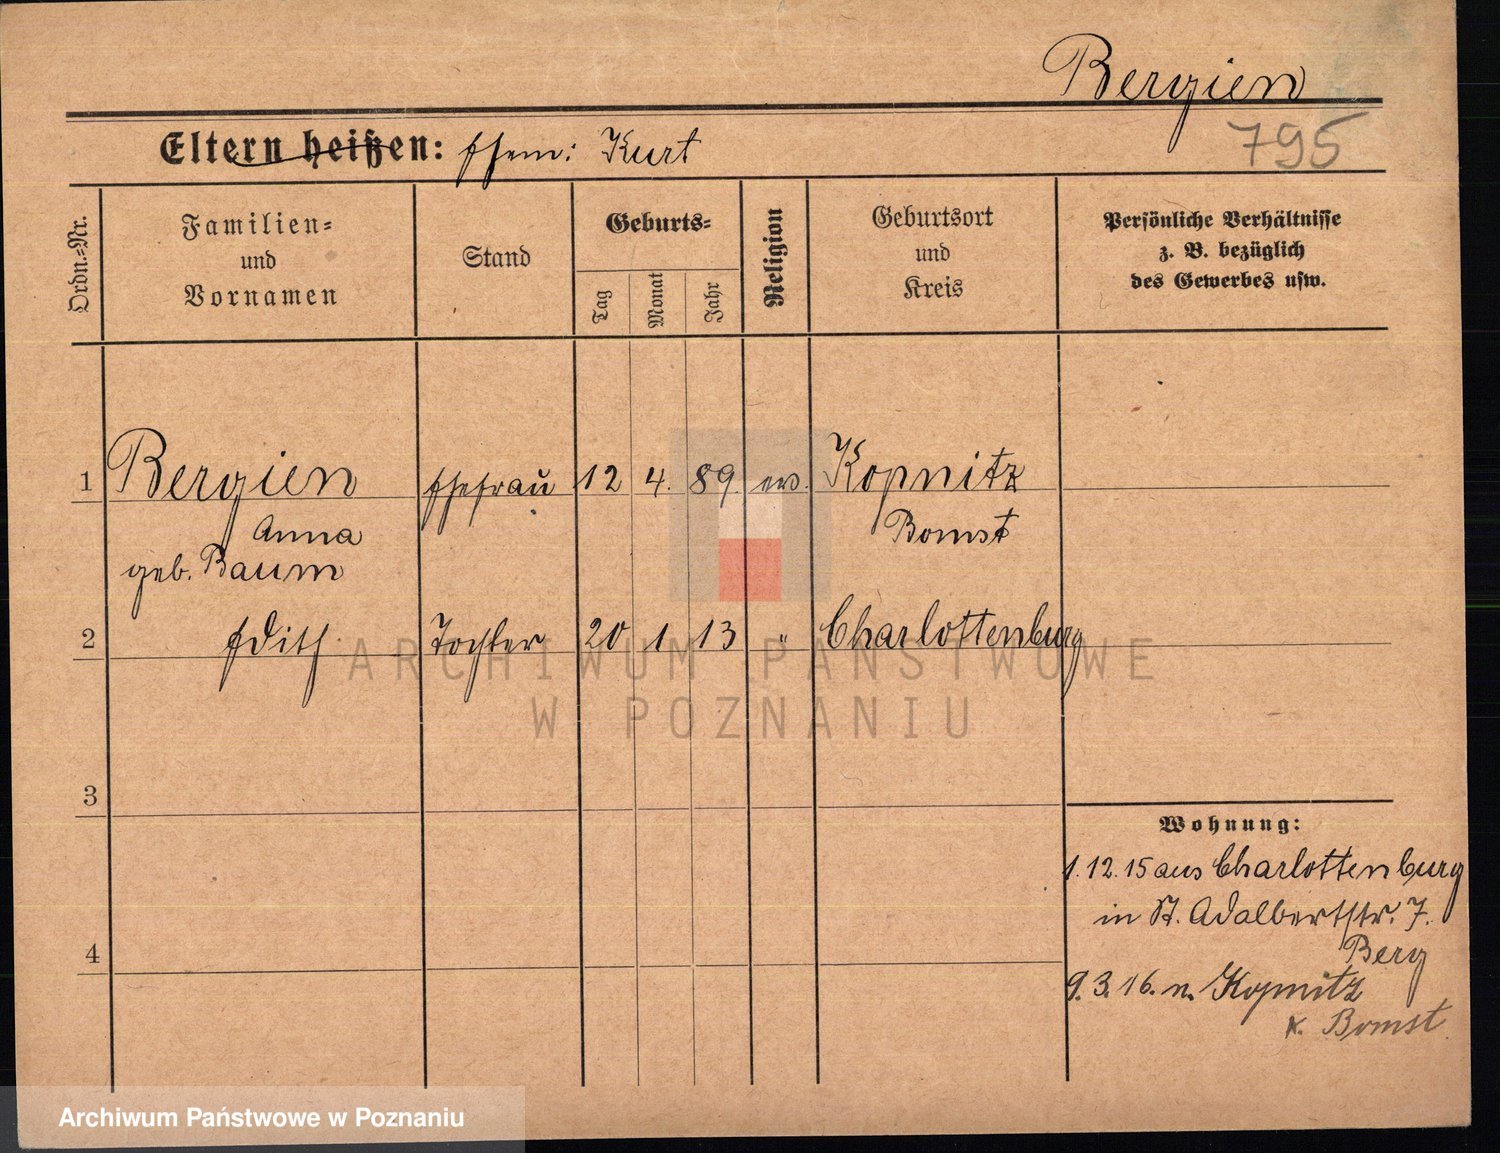 Bergien
795
Eltern heißen: Ehem: Kurt
Ordn.-Nr.
Familien-
und
Vornamen
Stand
Geburts-
Tag
Monat
Jahr
Religion
Geburtsort
und
Kreis
Persönliche Verhältnisse
z. B. bezüglich
des Gewerbes usw.
1 Bergien Ehefrau 12 4. 89. ev. Kopnitz
Anna Bomst
geb. Baum
2 Edith Tochter 20 1 13 " Charlottenburg
3
4
Wohnung:
1.12.15 aus Charlottenburg
in St. Adalbertstr. 7.
Berg
9.3.16. n. Kopnitz
K. Bomst
ARCHIWUM PAŃSTWOWE
W POZNANIU
Archiwum Państwowe w Poznaniu